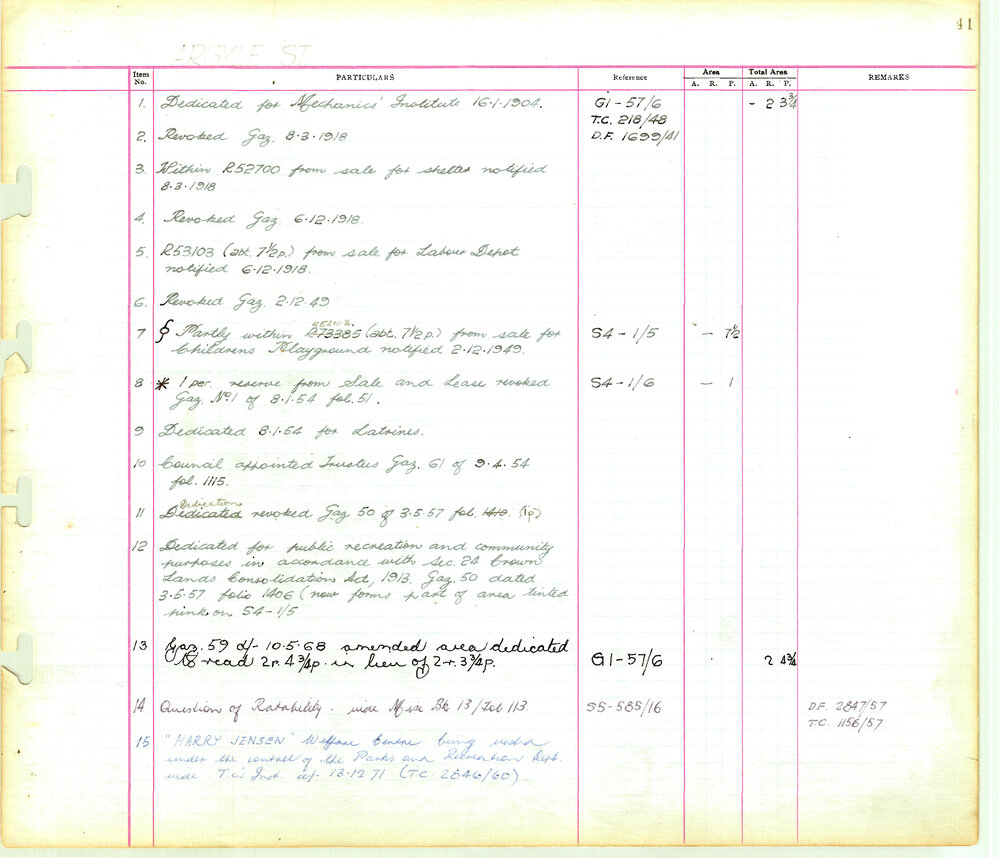 41
ARGYLE ST.
Item No. PARTICULARS Reference Area A. R. P. Total Area A. R. P. REMARKS
1. Dedicated for Mechanics' Institute 16.1.1904. G1-57/6 - 2 3¾
T.C. 218/48
2. Revoked Gaz. 8.3.1918 D.F. 1699/41
3. Within R52700 from sale for shelter notified
8.3.1918
4. Revoked Gaz. 6.12.1918.
5. R53103 (abt. 7½p.) from sale for Labour Depot
notified 6.12.1918.
6. Revoked Gaz. 2.12.49
R53103
7 § Partly within R73385 (abt. 7½p.) from sale for S4-1/5 - 7½
Childrens Playground notified 2.12.1949.
8 * 1 per. reserve from Sale and Lease revoked S4-1/6 - 1
Gaz. No.1 of 8.1.54 fol. 51.
9 Dedicated 8.1.54 for Latrines.
10 Council appointed Trustees Gaz. 61 of 9.4.54
fol. 1115.
Dedication
11 Dedicated revoked Gaz 50 of 3.5.57 fol. 1410. (1p)
12 Dedicated for public recreation and community
purposes in accordance with Sec. 24 Crown
Lands Consolidation Act, 1913. Gaz. 50 dated
3.5.57 folio 1406 (now forms part of area tinted
pink on S4-1/5
13 Gaz. 59 d/- 10.5.68 amended area dedicated
to read 2r. 4¾p. in lieu of 2r. 3¾p. G1-57/6 2 4¾
14 Question of Ratability. vide Misc Bk 13/Fol 113 S5-585/16 D.F. 2847/57
T.C. 1156/57
15 "HARRY JENSEN" Welfare Centre being vested
under the control of the Parks and Recreation Dept.
vide T.C's Inst. d/- 13.12.71 (T.C. 2846/60)